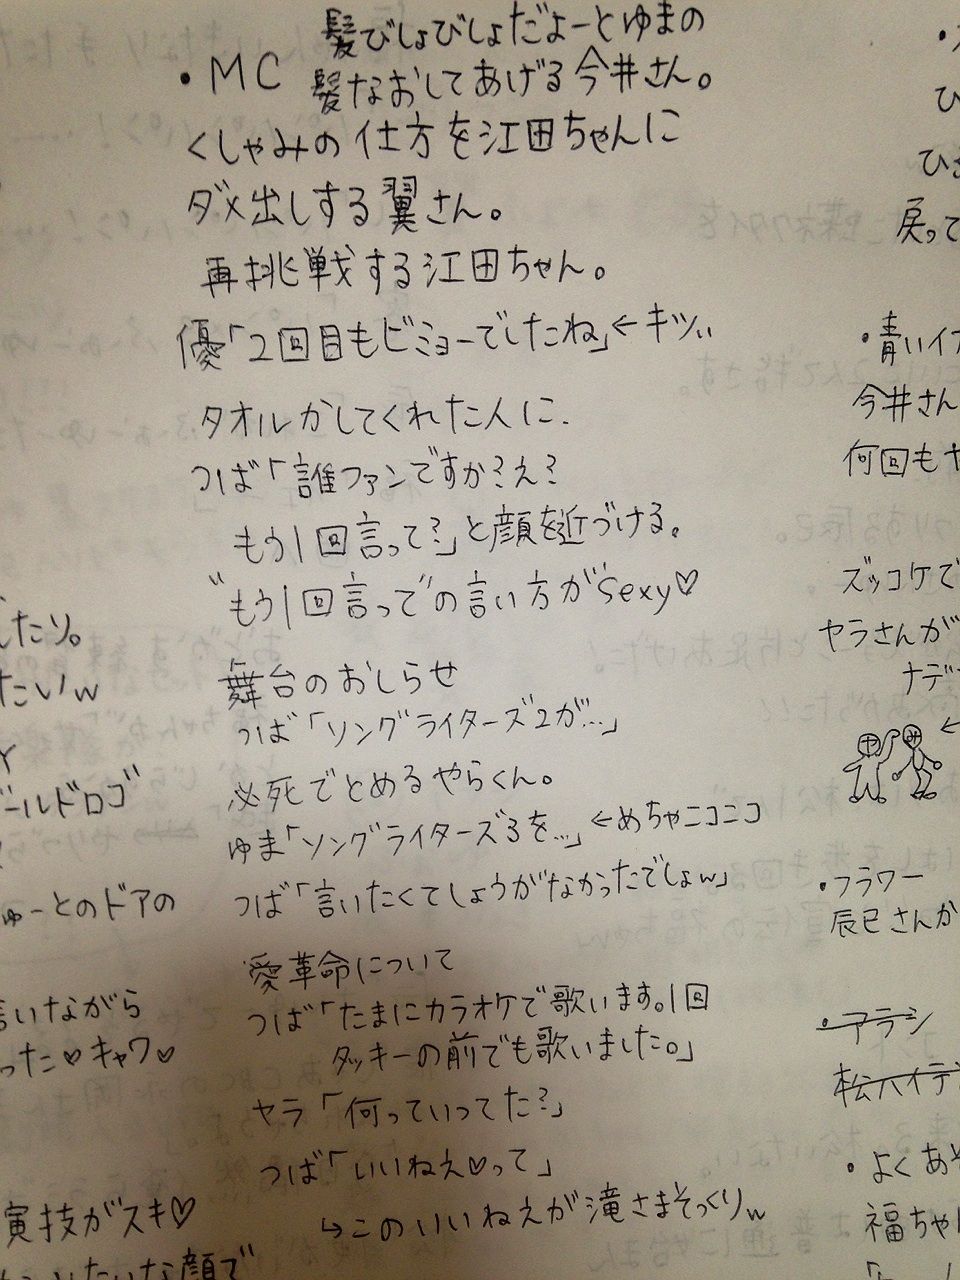 髪びしょびしょだよーとゆまの
・MC 髪なおしてあげる今井さん。
くしゃみの仕方を江田ちゃんに
ダメ出しする翼さん。
再挑戦する江田ちゃん。
優「2回目もビミョーでしたね」←キツい
タオルかしてくれた人に.
つば「誰ファンですか?え?
もう1回言って?」と顔を近づける。
"もう1回言って"の言い方がsexy♡
舞台のおしらせ
つば「ソングライターズ2が…」
必死でとめるやらくん。
ゆま「ソングライターズ3を…」←めちゃニコニコ
つば「言いたくてしょうがなかったでしょw」
愛革命について
つば「たまにカラオケで歌います。1回
タッキーの前でも歌いました。」
ヤラ「何っていってた?」
つば「いいねえ♡って」
↳このいいねえが滝さまそっくりw
したり。
たいw
ールドロゴ
ゅーとのドアの
言いながら
った♡キャワ♡
演技がスキ♡
いたいな顔で
ひ
戻って
・青いイア
今井さん
何回もヤ
ズッコケで
ヤラさんが
ナデ
ヤ み ←
・フラワー
辰巳さんが
・アラシ
松ハイデ
・よくあそ
福ちゃん